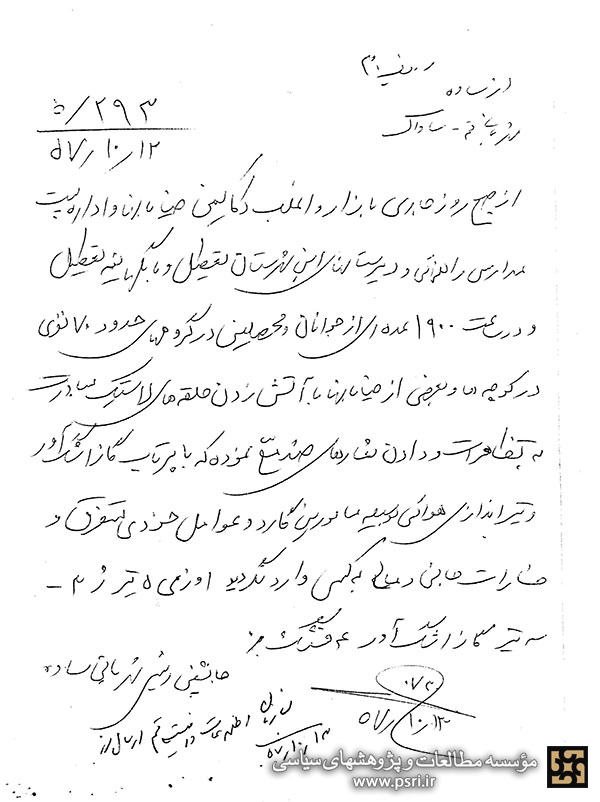 از ساوه
شهربانی قم - ساواک
۲۹۳/ ۵
۵۷/۱۰/۱۲
از صبح روز جاری بازار و اغلب دکاکین خیابانها و اداره پست
مدارس راهنمائی و دبیرستانهای این شهرستان تعطیل و بانکها نیمه تعطیل
و در ساعت ۱۹۰۰ عده ای از جوانان و محصلین در گروههای حدود ۷۰ نفری
در کوچه ها و بعضی از خیابانها با آتش زدن حلقه های لاستیک مبادرت
به تظاهرات و دادن شعارهای ضد میهنی نموده که با پرتاب گاز اشک آور
و تیراندازی هوائی بوسیله مامورین گارد و عوامل خودی متفرق و
خسارات جانی و مالی به کسی وارد نگردید اوزمی ۵ تیر ژ ۳ -
سه تیر گاز اشک آور ۴ فشنگ
جانشین رئیس شهربانی ساوه
۰۷۲
۵۷/۱۰/۱۳
اطلاعات و ضد قم ارسال
مؤسسه مطالعات و پژوهشهای سیاسی
www.psri.ir